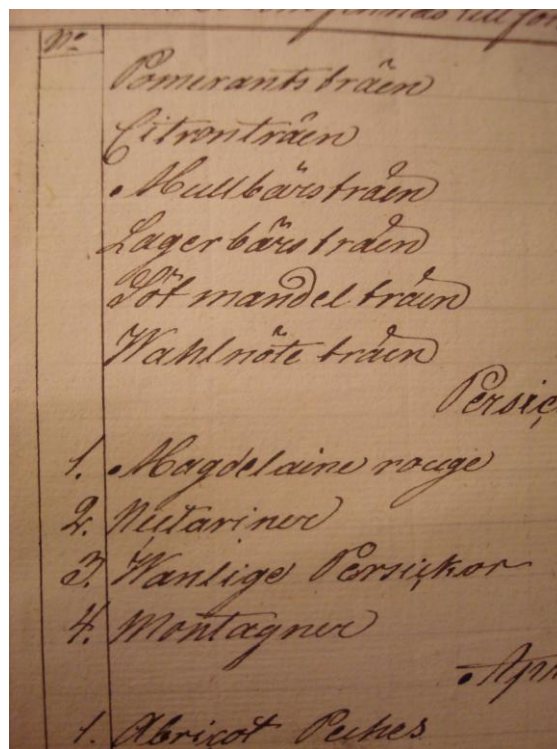 No
Pomerants träen
Citronträen
Mullbärsträen
Lagerbärsträen
Söt mandel träen
Wahlnöte träen
Persic
1. Magdelaine rouge
2. Nectariner
3. Wanlige Persickor
4. Montagner
Apr
1. Abricot Peches